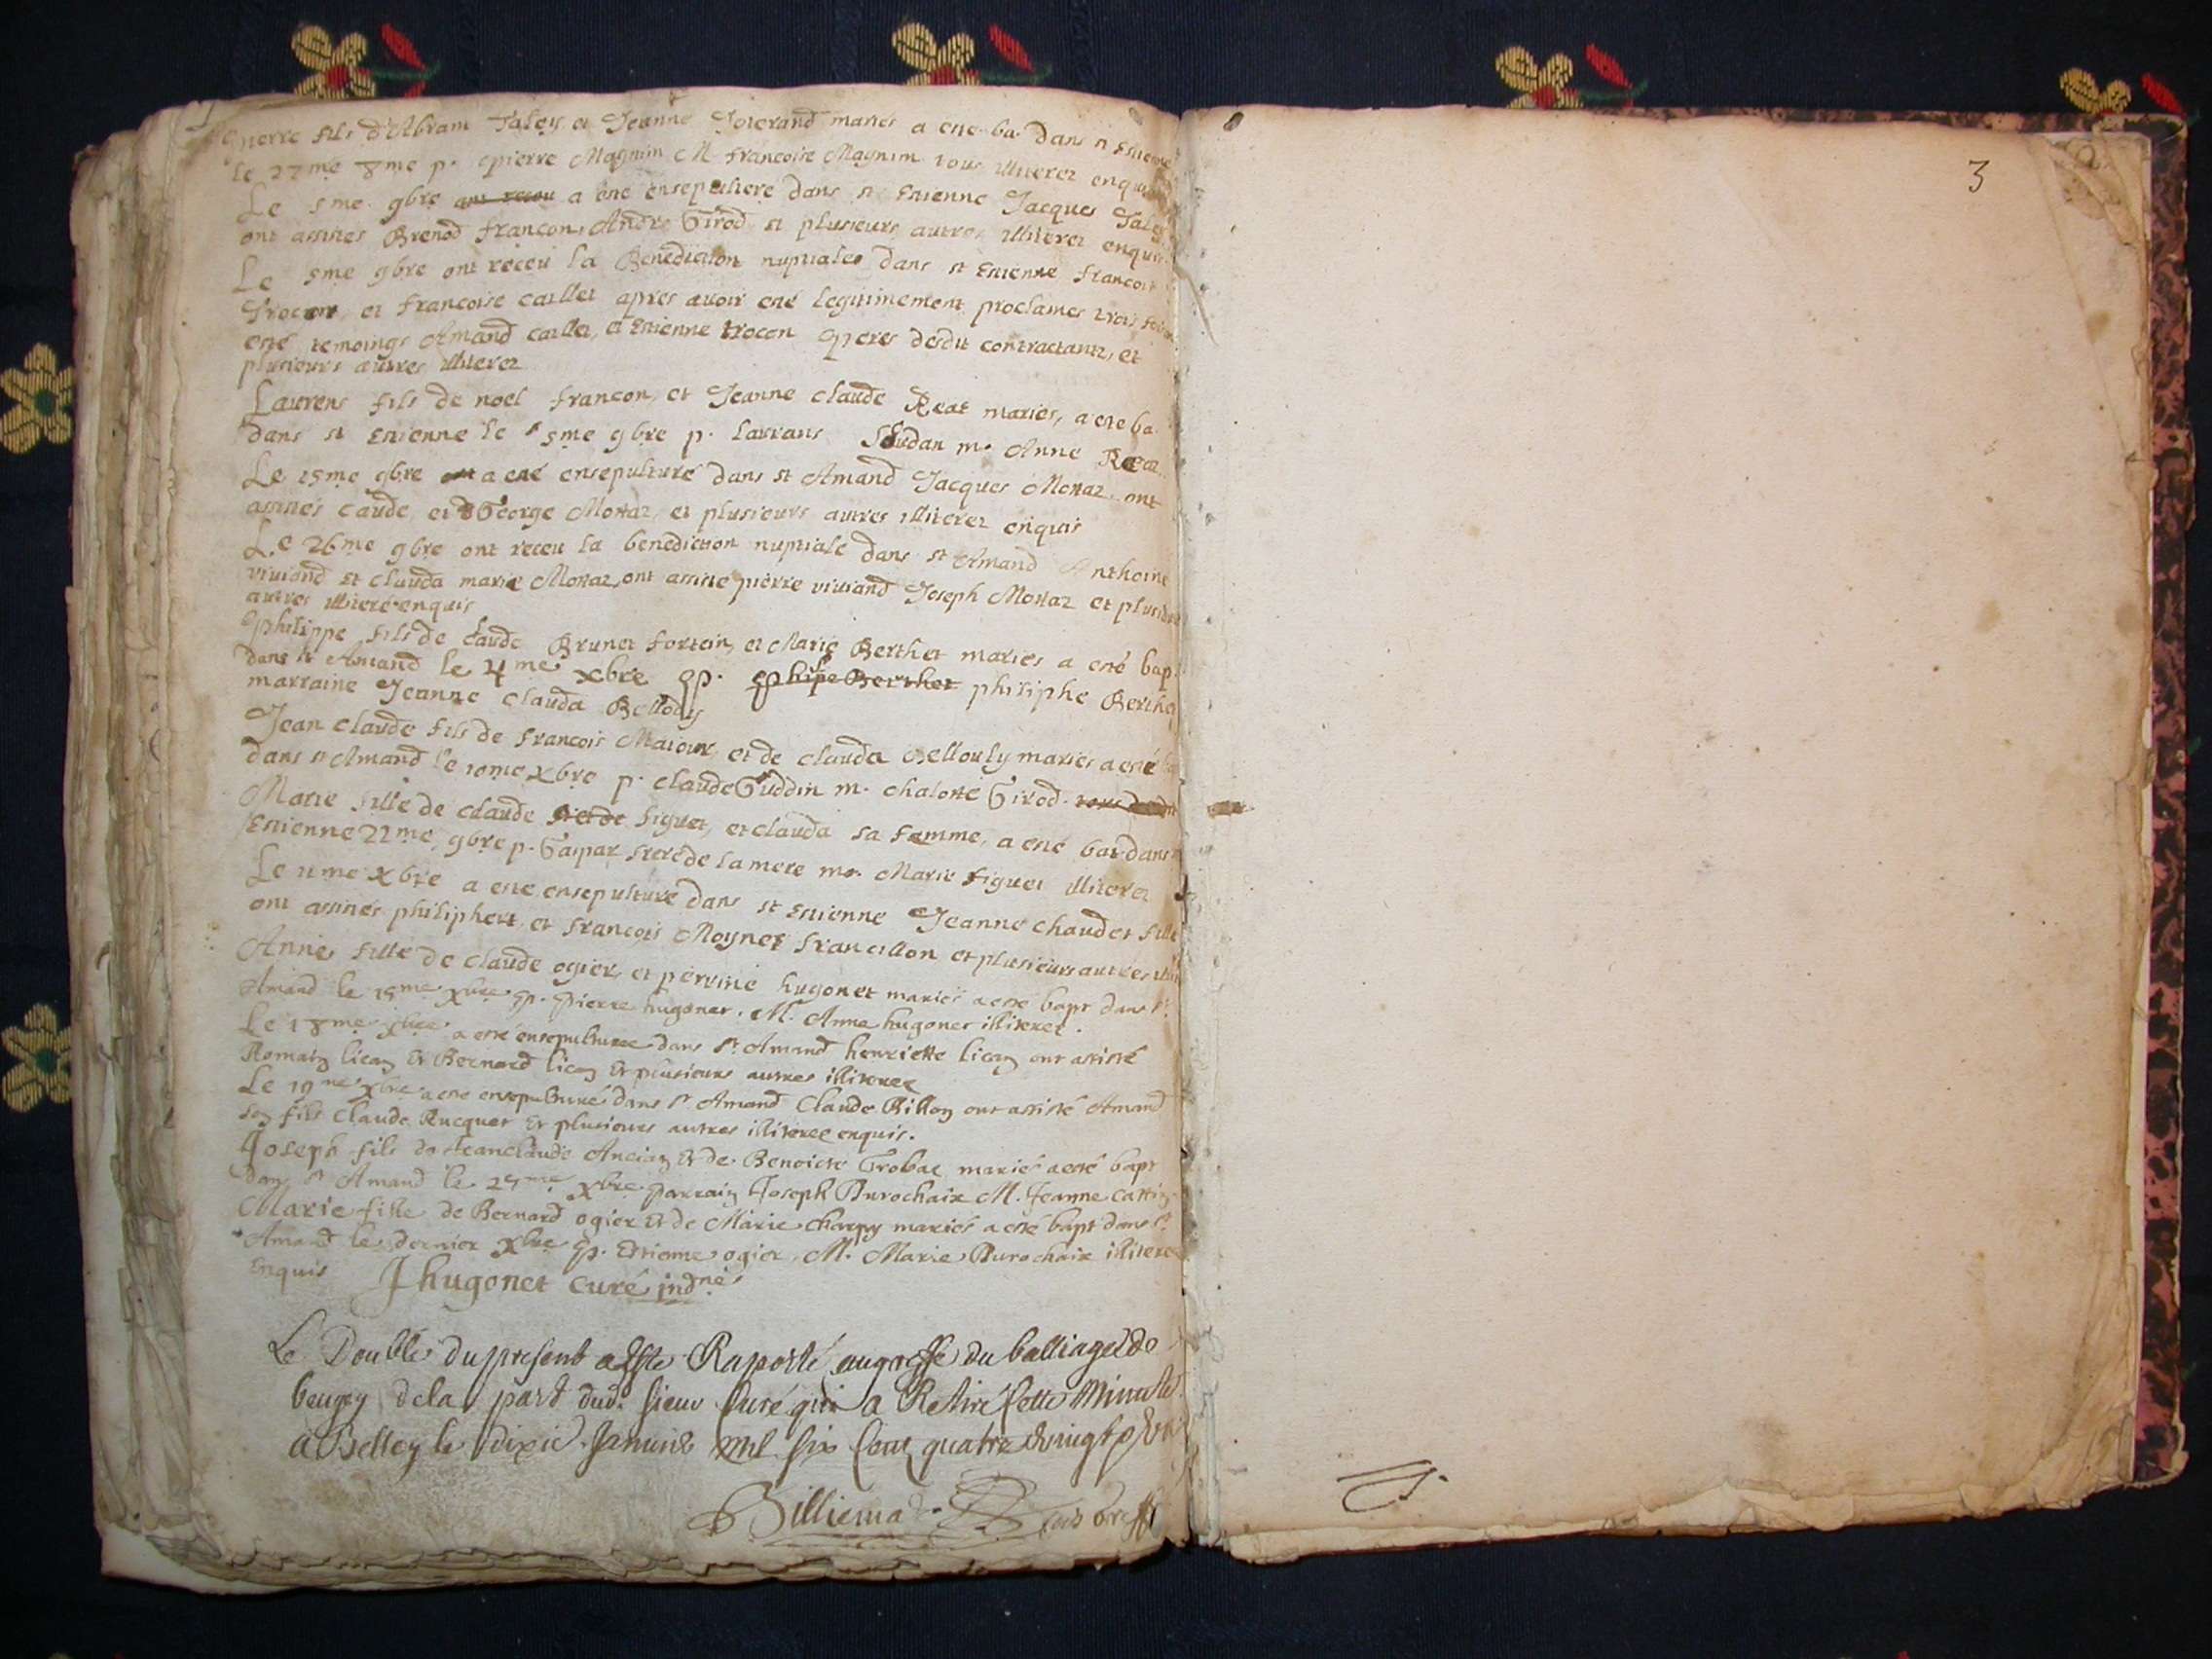 pierre fils d'Abram Taley et Jeanne maries a este ba. dans st Estienne
le 22me 8me p. pierre Magnim M francoise Magnim tous illiterez enquis
Le 5me 9bre a esté ensepulture dans st Estienne Jacques Taley
ont assistes Brenod francon, Andre Girod et plusieurs autres illiterez enquis
Le 5me 9bre ont receu la Benediction nuptiale dans st Estienne francois
trocon, et francoise caillet apres avoir esté legitimement proclames trois fois
esté temoings Amand caillet, et Estienne trocon peres desdit contractants, et
plusieurs autres illiterez
Laurens fils de noel francon, et Jeanne claude Reat maries, a este ba.
dans st Estienne le 5me 9bre p. laurans m. Anne Reat
Le 15me 9bre a esté ensepulturé dans st Amand Jacques Mottaz ont
assines caude, et George Mottaz, et plusieurs autres illiterez enquis
Le 26me 9bre ont receu la benediction nuptiale dans st Amand Anthoine
viviand et clauda marie Mottaz, ont assisté pierre viviand Joseph Mottaz et plusieurs
autres illiteré enquis
philippe fils de claude Brunet fortein, et Marie Berthet maries a esté bap
dans st Amand le 4me xbre p. philipe Berthet philiphe Berthet
marraine Jeanne clauda Bellody
Jean claude fils de francois et de clauda Bellouly maries a esté
dans st Amand le 10me xbre p. claude Guddin m. chalotte Girod
Marie fille de claude figuet, et clauda sa femme, a esté bat dans
Estienne 22me, 9bre p. Gaspar frere de la mere me. Marie figuet illiterez
Le 11me xbre a este ensepulture dans st Estienne Jeanne chaudet fille
ont assines philiphert, et francois Moyner francillon et plusieurs autres
Anne fille de claude ogier, et pervine hugonet mariés a esté bapt dans st
Amand le 15me xbre p. pierre hugonet. M. Anne hugonet illiterez.
Le 18me xbre a esté ensepulturee dans st Amand henriette licon ont assisté
Romain licon Et Bernard licon Et plusieurs autres illiterez
Le 19me xbre a este ensepulturé dans st Amand Claude Billon ont assisté Amand
son fils Claude Rucquet Et plusieurs autres illiterez enquis.
Joseph fils de Jeanclaude Ancian Et de Benoiste Trobac mariés a esté bapt
dans st Amand le 25me xbre parrain Joseph Burochaix M. Jeanne cattin
Marie fille de Bernard ogier Et de Marie charpy mariés a esté bapt dans st
Amand le dernier xbre p. Estienne ogier. M. Marie Burochaix illiterez
enquis J hugonet curé indne
Le Double du present a este Raporté au greffe du balliage de
beugey de la part dud. sieur Curé qui a Retiré cette Minute
a Belley le dixie. Janvier mil six cent quatre vingt
Billiema
3